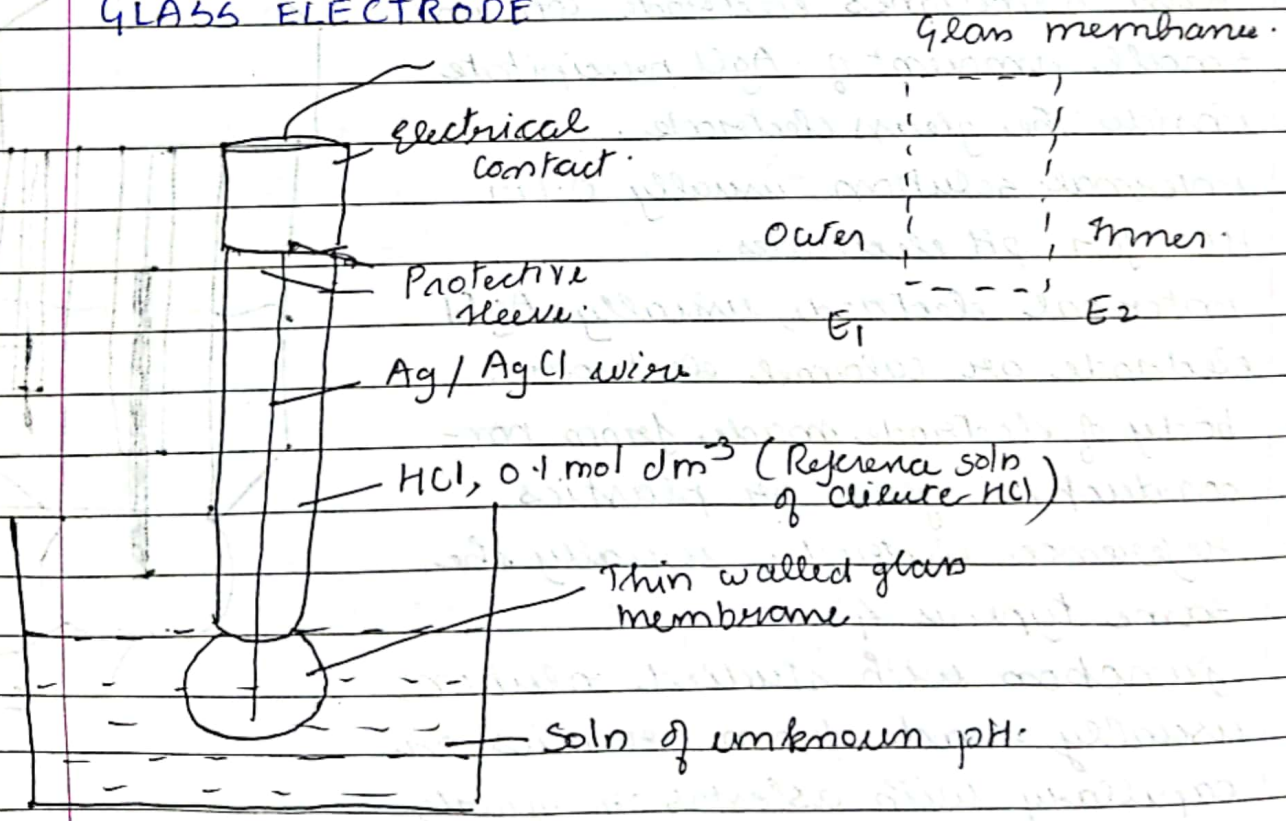 GLASS ELECTRODE
Glass membrane.
Electrical
contact.
Outer
Inner.
Protective
sleeve.
E1
E2
Ag / AgCl wire
HCl, 0.1 mol dm⁻³ (Reference soln
of dilute HCl)
Thin walled glass
membrane
Soln of unknown pH.